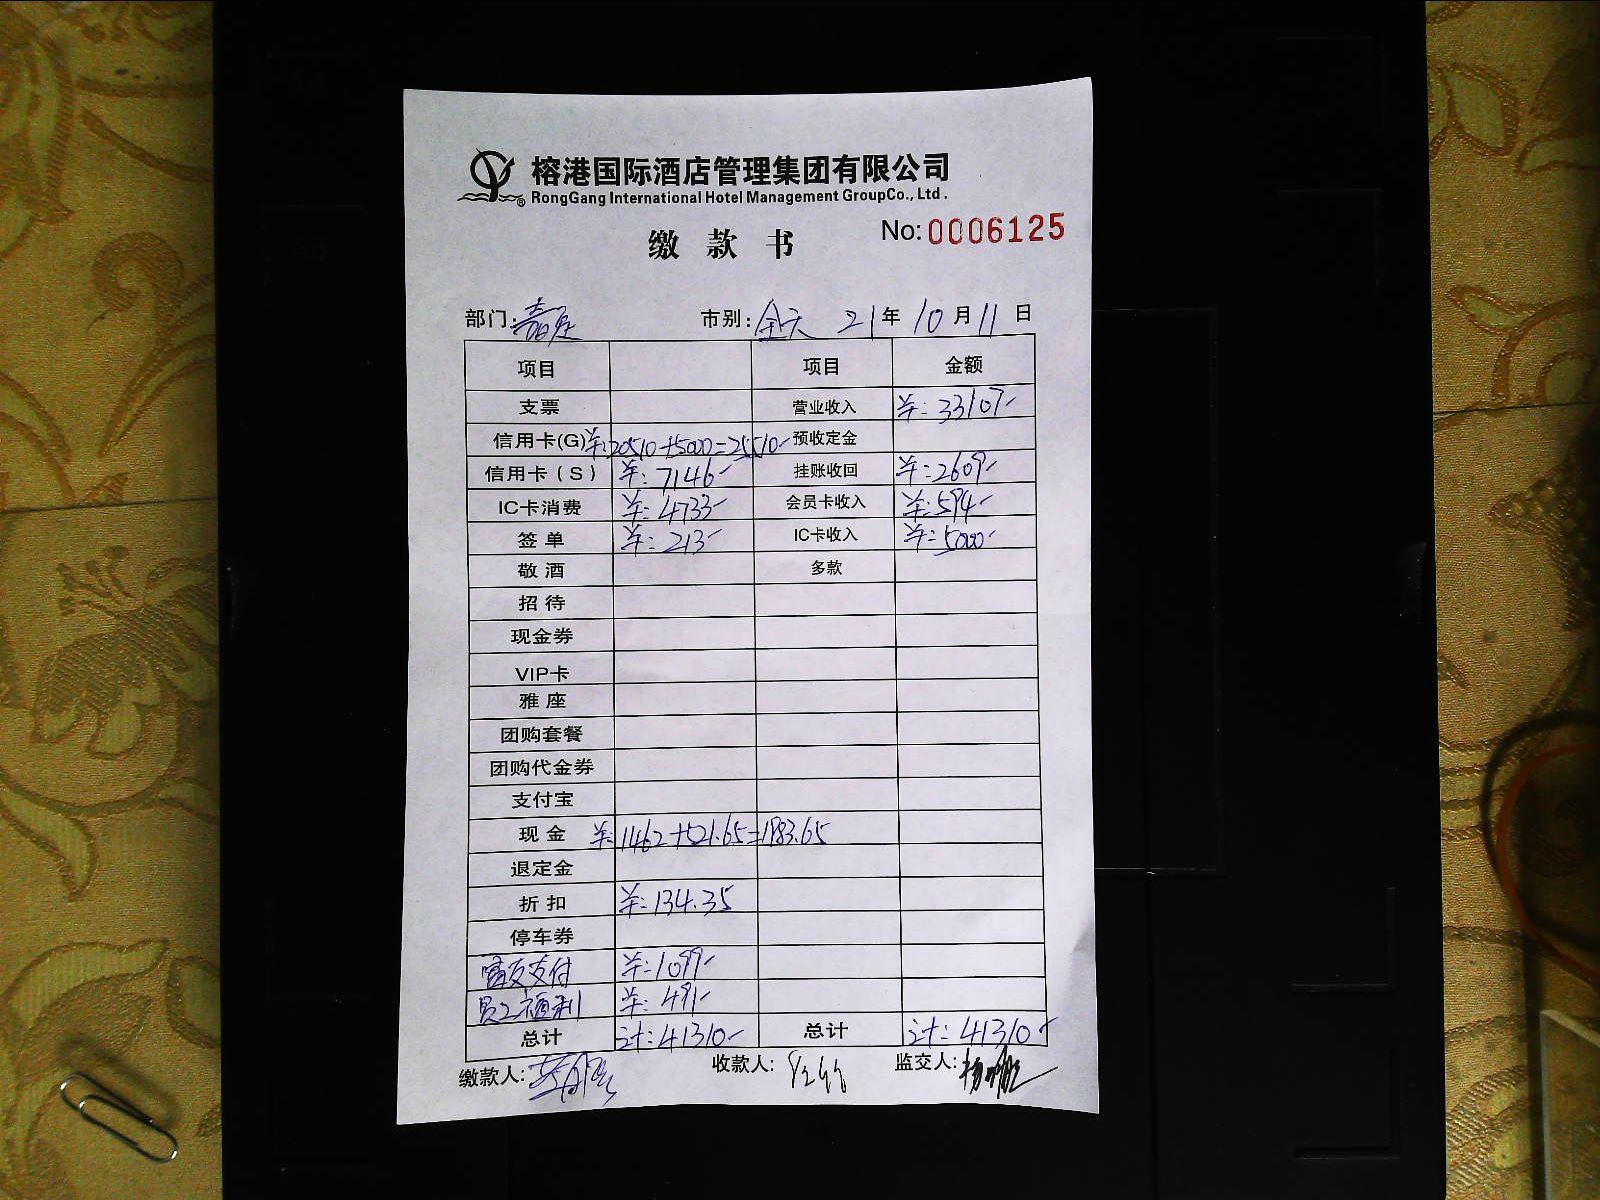 榕港国际酒店管理集团有限公司
® RongGang International Hotel Management GroupCo., Ltd.
缴款书
No:0006125
部门: 市别:全天 21年10月11日
项目 项目 金额
支票 营业收入 ¥:33107-
信用卡(G) ¥:20510+5000=25510- 预收定金
信用卡(S) ¥:7146- 挂账收回 ¥:2609-
IC卡消费 ¥:4733- 会员卡收入 ¥:594-
签单 ¥:213- IC卡收入 ¥:5000-
敬酒 多款
招待
现金券
VIP卡
雅座
团购套餐
团购代金券
支付宝
现金 ¥:1462+521.65=1983.65
退定金
折扣 ¥:134.35
停车券
支付 ¥:1099-
员工福利 ¥:491-
总计 计:41310- 总计 计:41310-
缴款人: 收款人: 监交人: